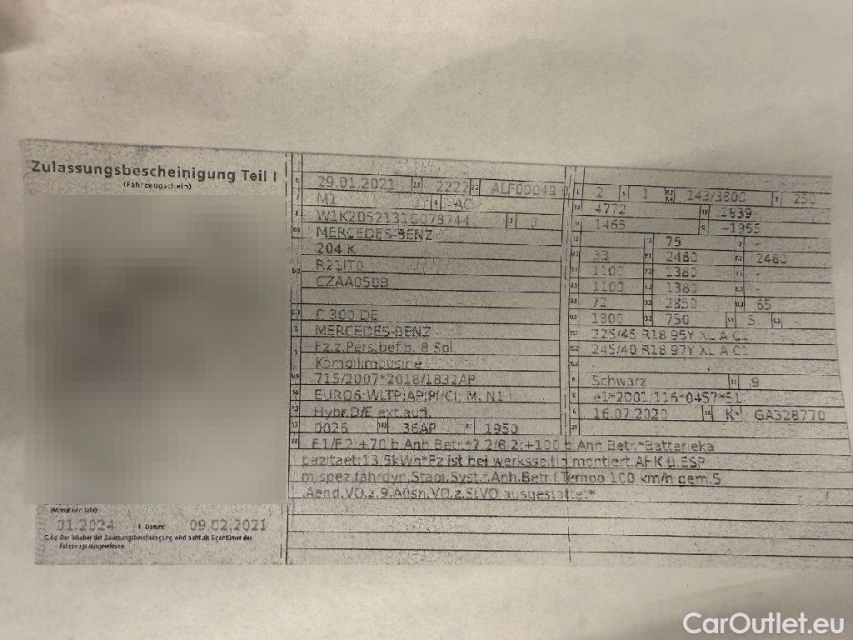 Zulassungsbescheinigung Teil I
(Fahrzeugschein)
29.01.2021 2222
M1 AC
MERCEDES-BENZ
204 K
R21IT0
CZAA050B
C 300 DE
MERCEDES-BENZ
Fz.z.Pers.bef.b. 8 Spl.
Kombilimousine
715/2007*2018/1832AP
EURO6
Hybr.D/E ext.aufl.
0026 36AP 1950
2 1 143/3800 250
4772 1839
1465 -1955
75 - -
33 2480 2480
1100 1380 -
1100 1380 -
72 2850 65
1800 750 5
225/45 R18 95Y XL A C1
245/40 R18 97Y XL A C1
Schwarz 9
e1*2001/116*0457*51
16.07.2020 K GA328770
F.1/F.2:+70 b.Anh.Betr.*7.2/8.2:+100 b.Anh.Betr.*Batterieka
pazitaet:13,5kWh*Fz ist bei werksseitig montiert.AHK u.ESP
m.spez.fahrdyn.Stabi.Syst.*.Anh.Betr.f.Tempo 100 km/h gem.5
.Aend.VO.z.9.Ausn.VO.z.StVO ausgestattet*
(Monat und Jahr)
01.2024 I Datum: 09.02.2021
C.4c Der Inhaber der Zulassungsbescheinigung wird nicht als Eigentümer des
Fahrzeugs ausgewiesen.
CarOutlet.eu